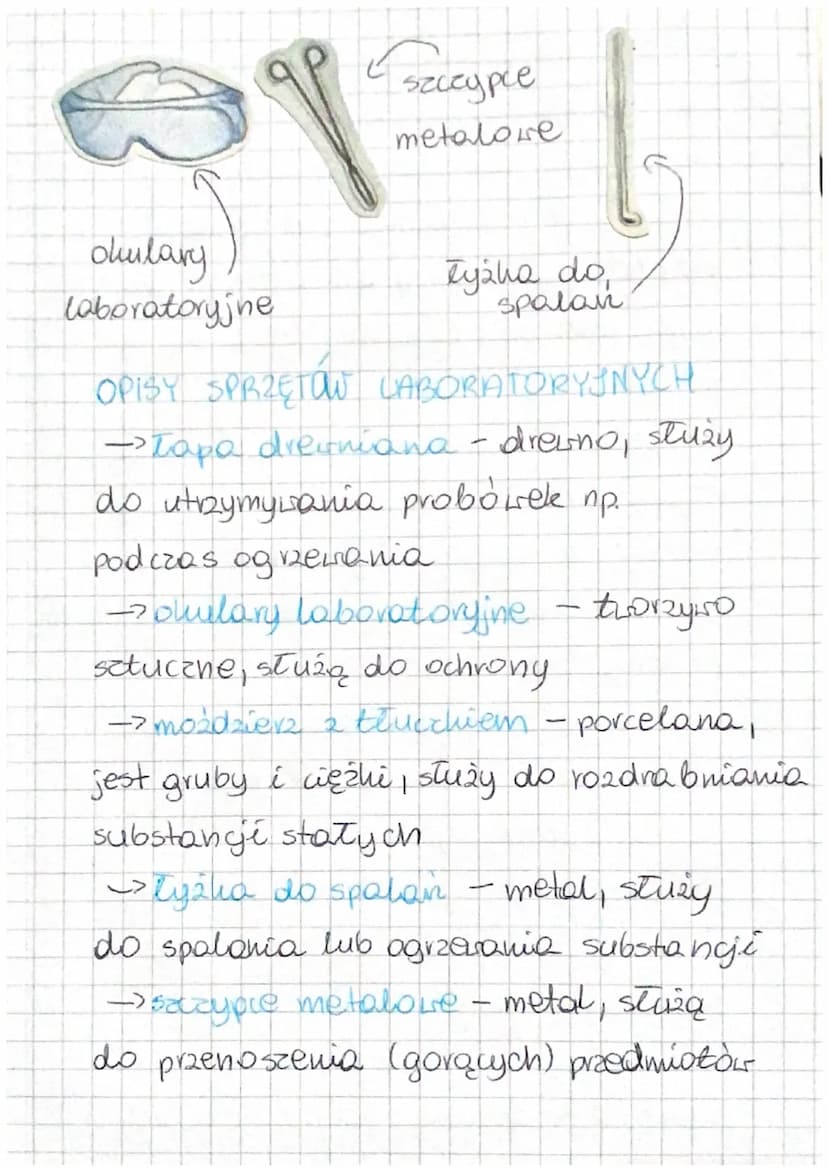 szczypce
metalowe
okulary
laboratoryjne
łyżka do
spalań
OPISY SPRZĘTÓW LABORATORYJNYCH
→ łapa drewniana - drewno, służy
do utrzymywania probówek np.
podczas ogrzewania
→ okulary laboratoryjne - tworzywo
sztuczne, służą do ochrony
→ moździerz z tłuczkiem - porcelana,
jest gruby i ciężki, służy do rozdrabniania
substancji stałych
→ łyżka do spalań - metal, służy
do spalania lub ogrzewania substancji
→ szczypce metalowe - metal, służą
do przenoszenia (gorących) przedmiotów